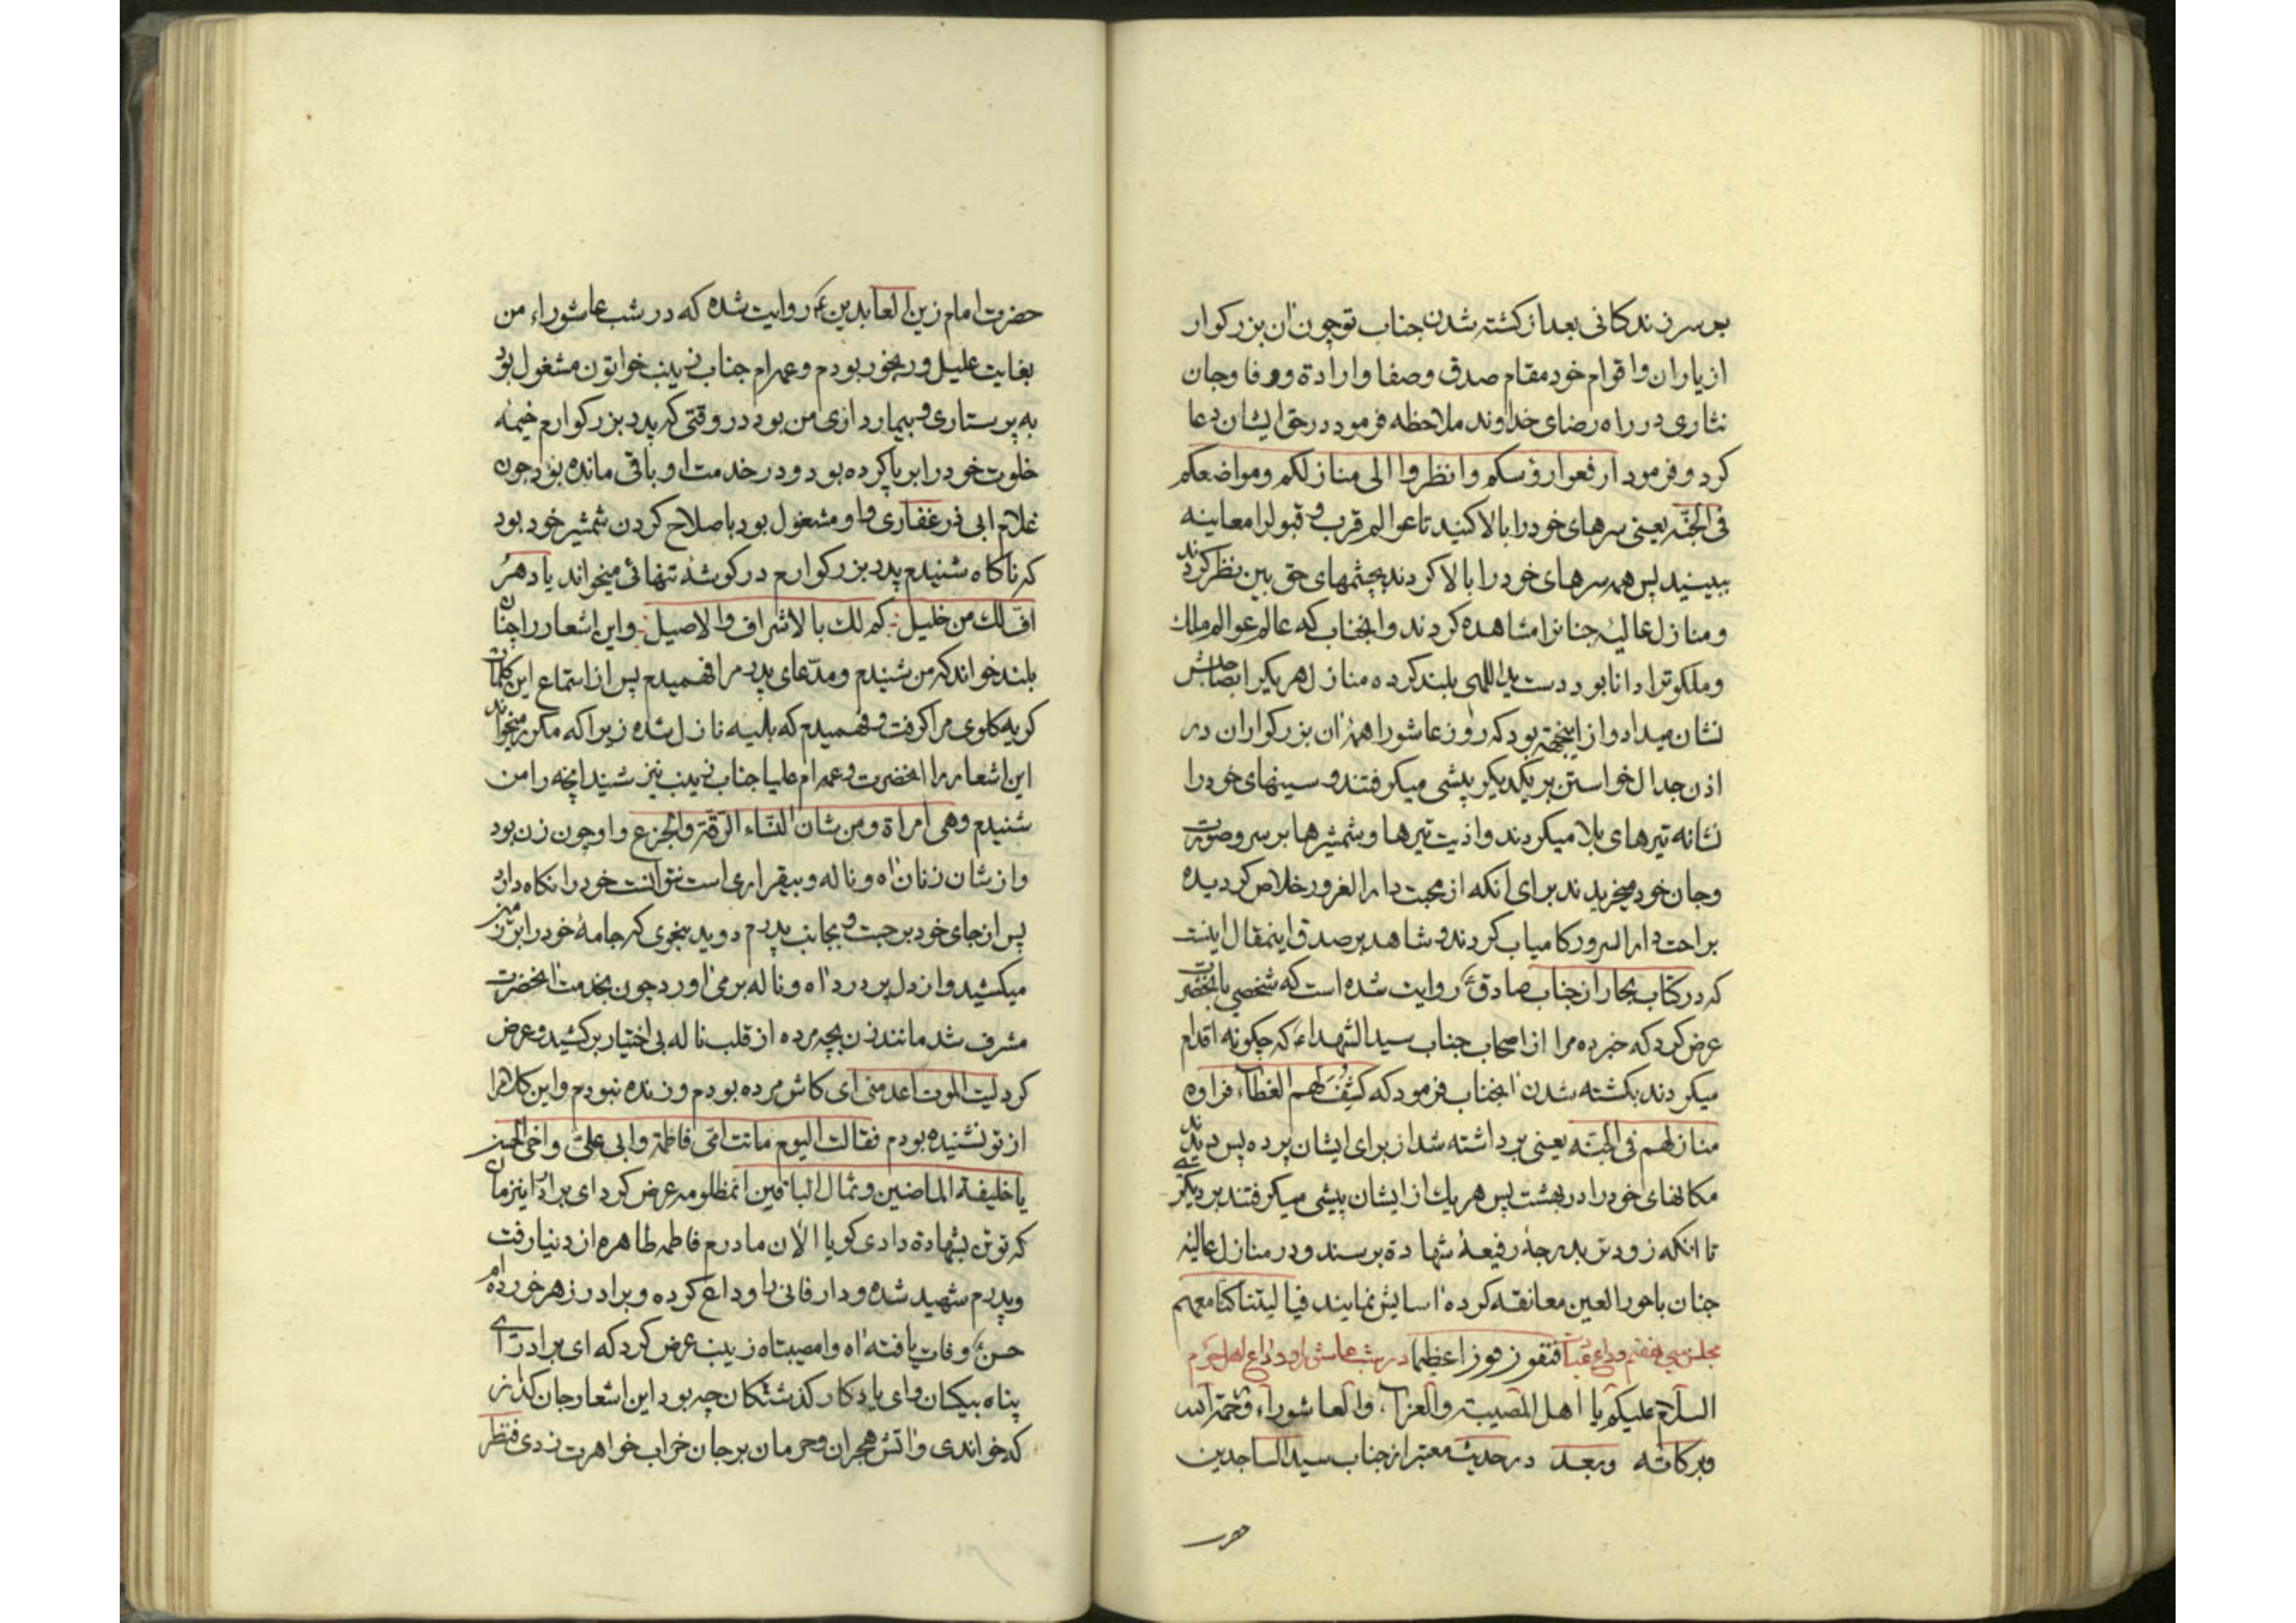 بر سر زندکانی بعد از کشته شدن جناب تو چون ان بزرکوار
از یاران و اقوام خود مقام صدق و صفا و ارادة و وفا و جان
نثاری در راه رضای خداوند ملاحظه فرمود در حق ایشان دعا
کرد و فرمود ارفعوا رؤسکم وانظروا الی منازلکم ومواضعکم
فی الجنّة یعنی سرهای خود را بالا کنید تا عوالم قرب و قبول را معاینه
ببینید پس همه سرهای خود را بالا کردند بچشمهای حق بین نظر کردند
و منازل عالیۀ جنانرا مشاهده کردند و انجناب که عالم عوالم ملک
و ملکوترا دانا بود دست ید اللهی بلند کرده منازل هر یکیرا بصاحبش
نشان میداد و از اینجهة بود که روز عاشورا همۀ ان بزرکواران در
اذن جدال خواستن بر یکدیکر پیشی میکرفتند و سینهای خود را
نشانه تیرهای بلا میکردند و اذیت تیرها و شمشیرها بر سر و صورت
و جان خود میخریدند برای انکه از محبت دار الغرور خلاص کردیده
براحت دار السرور کامیاب کردند و شاهد بر صدق اینمقال اینست
که در کتاب بحار از جناب صادق ع روایت شده است که شخصی بانحضرت
عرض کرد که خبر ده مرا از اصحاب جناب سید الشهداء ع که چکونه اقدام
میکردند بکشته شدن انجناب فرمود که کُشِفَ لهم الغطاء فراوه
منازلهم فی الجنّة یعنی برداشته شد از برای ایشان پرده پس دیدند
مکانهای خود را در بهشت پس هر یک از ایشان پیشی میکرفتند بر دیکری
تا انکه زودتر بدرجۀ رفیعۀ شهادة برسند و در منازل عالیۀ
جنان با حور العین معانقه کرده اسایش نمایند فیا لیتنا کنّا معهم
مجلس سی هفتم وداع فنفوز فوزا عظیما در شب عاشورا و وداع اهل حرم
السلام علیکم یا اهل المصیبت والعزاء، والعاشوراء، ورحمة الله
وبرکاته وبعد در حدیث معتبر از جناب سید الساجدین
حضرت
حضرت امام زین العابدین ع روایت شده که در شب عاشوراء من
بغایت علیل و رنجور بودم و عمه‌ام جناب زینب خواتون مشغول بود
به پرستاری و بیمارداری من بود در وقتی که پدر بزرکوارم خیمۀ
خلوت خود را بر پا کرده بود و در خدمت او باقی مانده بود جون
غلام ابی ذر غفاری و او مشغول بود باصلاح کردن شمشیر خود بود
که ناکاه شنیدم پدر بزرکوارم در کوشۀ تنهائی میخواند یا دهرُ
افّ لک من خلیل: کم لک بالاشراف والاصیل: و این اشعار را چنان
بلند خواند که من شنیدم و مدّعای پدر مرا فهمیدم پس از استماع این کلمات
کریه کلوی مرا کرفت و فهمیدم که بلیه نازل شده زیرا که مکرر میخواند
این اشعار را انحضرت و عمه‌ام علیا جناب زینب نیز شنید انچه را من
شنیدم وهی امراة ومن شان النّساء الرّقّة والجزع و او چون زن بود
و از شان زنان اه و ناله و بیقراری است نتوانست خود را نکاه دارد
پس از جای خود بر جست و بجانب پدرم دوید بنحوی که جامۀ خود را بر زمین
میکشید و از دل پر درد اه و ناله بر می اورد چون بخدمت انحضرت
مشرف شد مانند زن بچه مرده از قلب ناله بی اختیار بر کشید و عرض
کرد لیت الموت اعدمنی ای کاش مرده بودم و زنده نبودم و این کلام را
از تو نشنیده بودم فقالت الیوم ماتت امّی فاطمة وابی علیّ واخی الحسن
یا خلیفة الماضین وثمال الباقین انمظلومه عرض کرد ای برادر اینزمان
که تو تن بشهادة دادی کویا الان مادرم فاطمه طاهره از دنیا رفت
و پدرم شهید شده و دار فانی را وداع کرده و برادر زهر خورده‌ام
حسن ع وفات یافته اه وا مصیبتاه زینب عرض کرد که ای برادر ای
پناه بیکسان و ای یادکار کذشتکان چه بود این اشعار جان کداز
که خواندی و اتش هجران و حرمان بر جان خراب خواهرت زدی فنظر